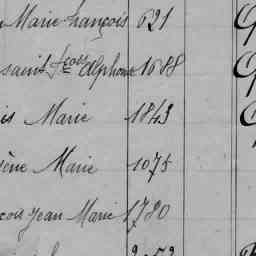 Marie françois 621
saint fcois Alphonse 1088
is Marie 1843
ène Marie 1075
çois Jean Marie 1780